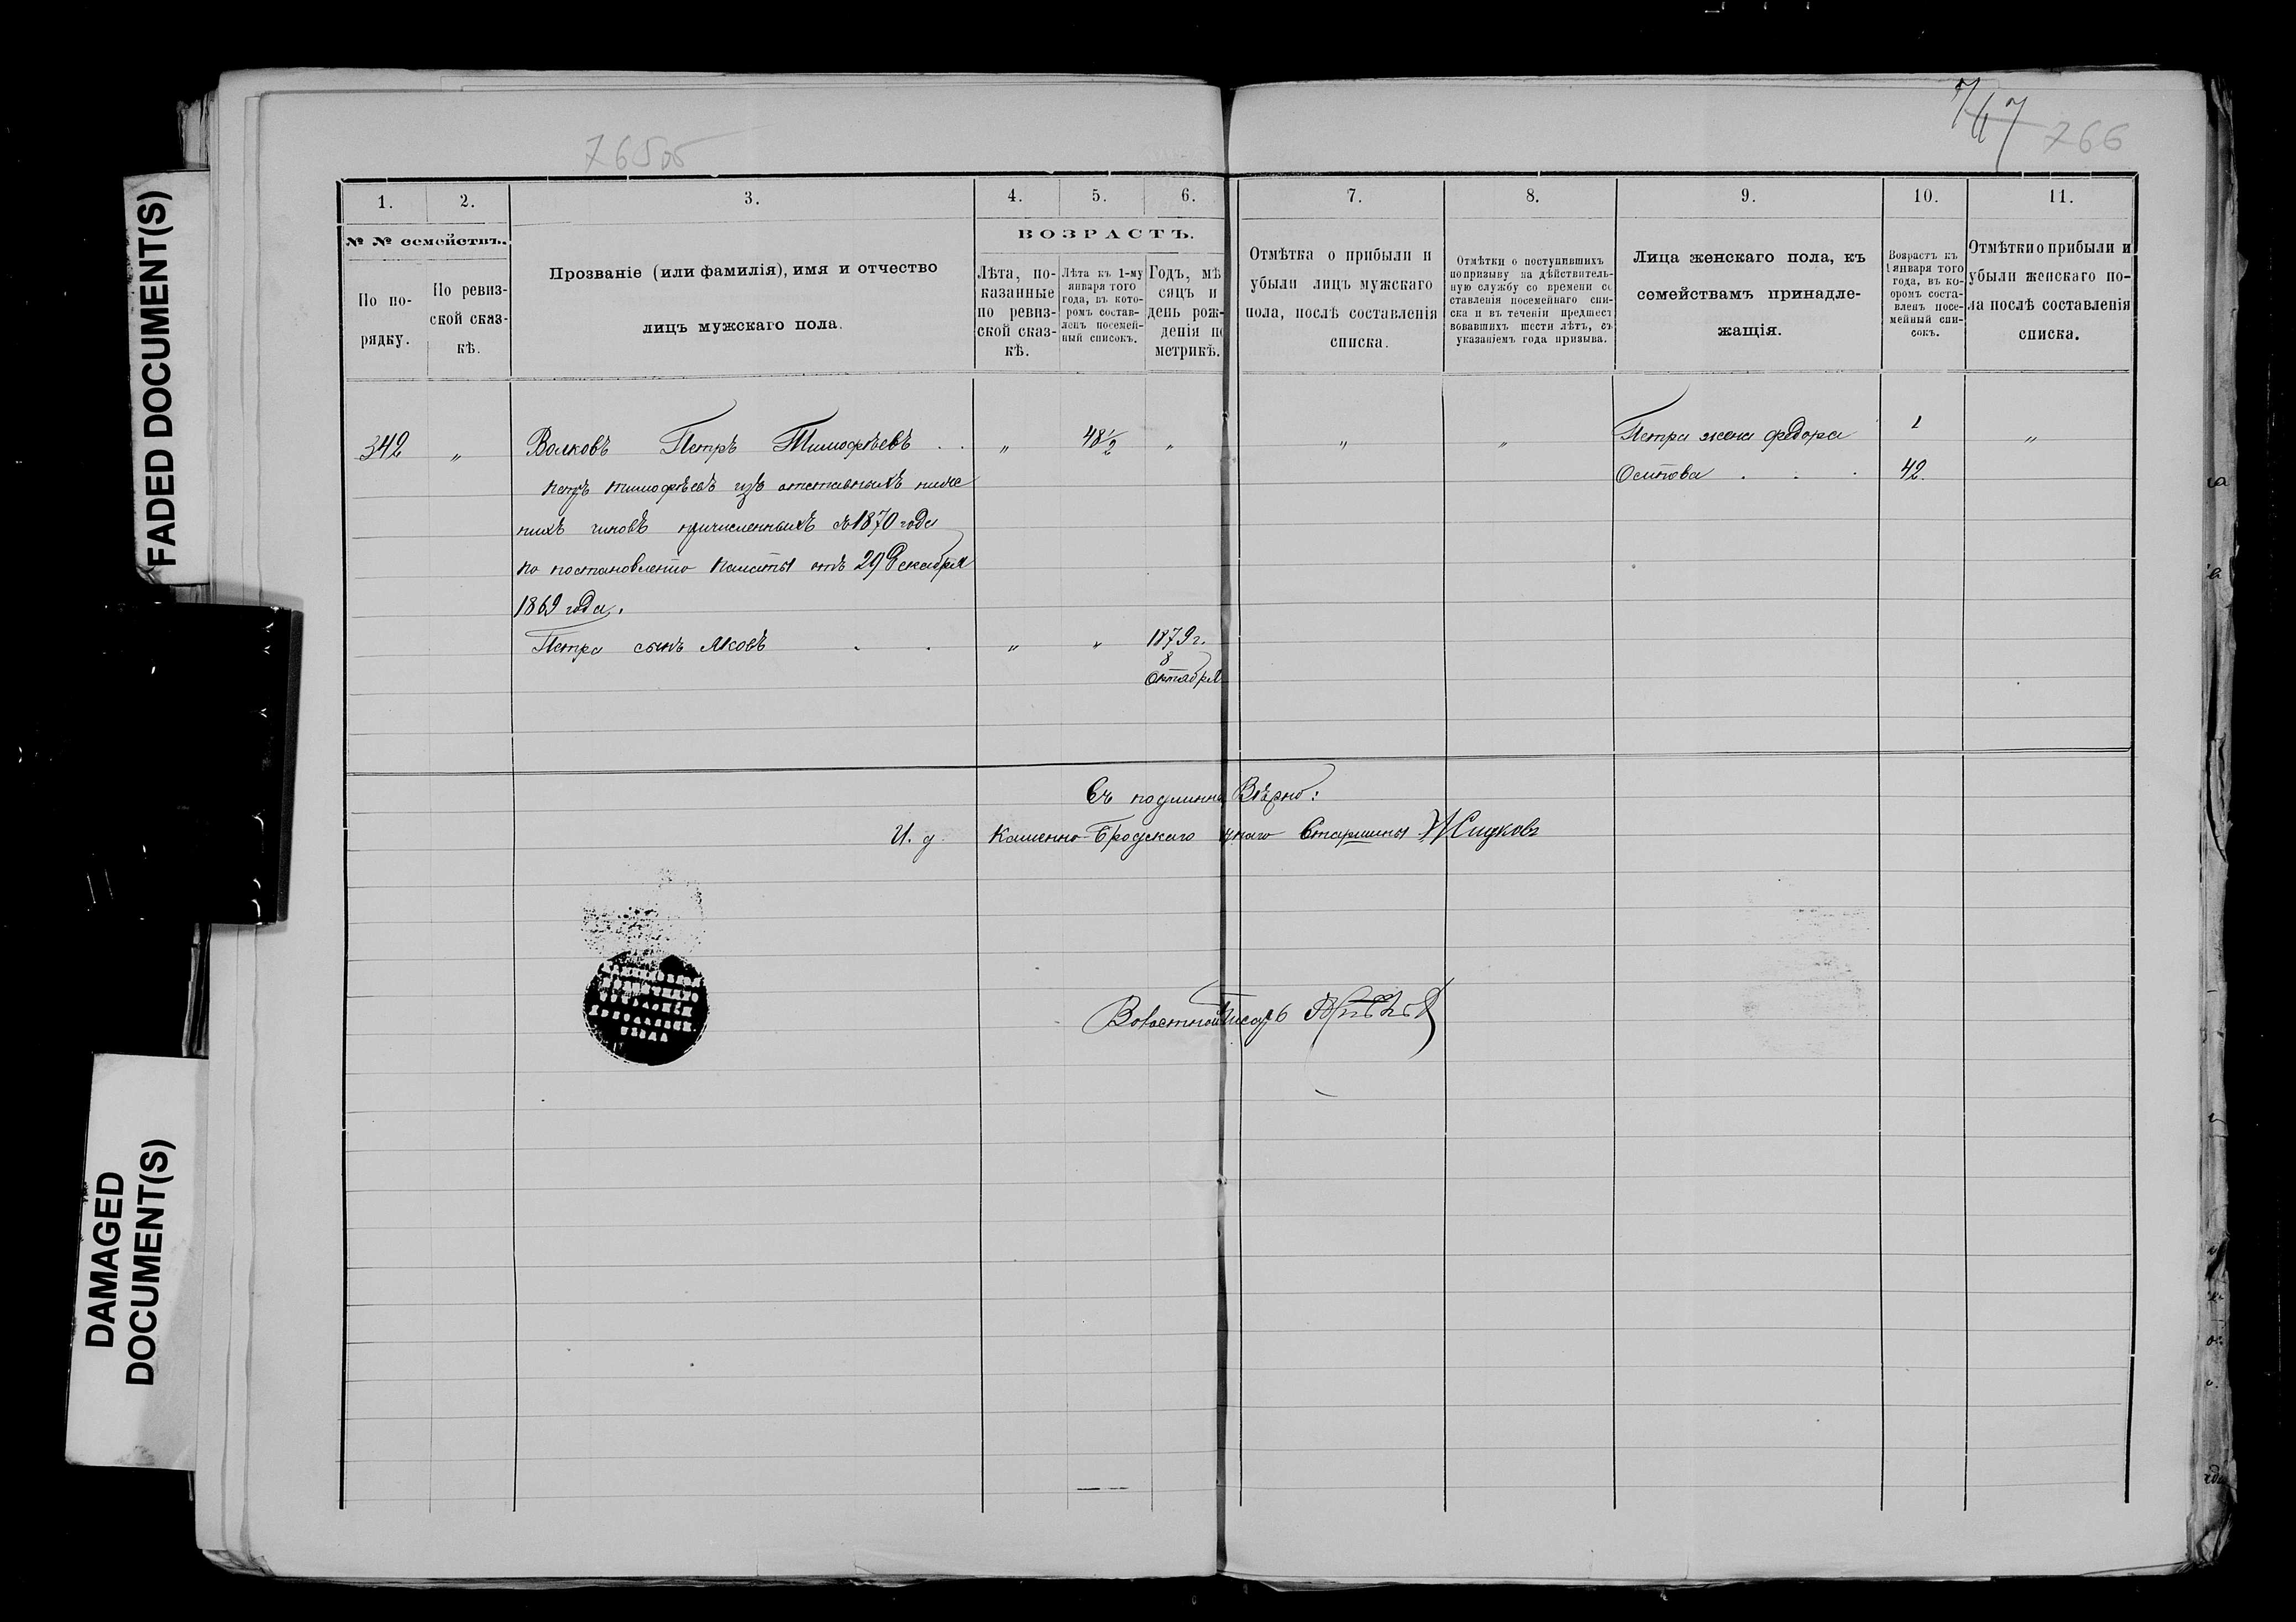 FADED DOCUMENT(S)
DAMAGED
DOCUMENT(S)
765об
767 766
1. 2. 3. 4. 5. 6. 7. 8. 9. 10. 11.
№ № семействъ.
По по-
рядку.
По ревиз-
ской сказ-
кѣ.
Прозваніе (или фамилія), имя и отчество
лицъ мужскаго пола.
ВОЗРАСТЪ.
Лѣта, по-
казанные
по ревиз-
ской сказ-
кѣ.
Лѣта къ 1-му
января того
года, въ кото-
ромъ состав-
ленъ посемей-
ный списокъ.
Годъ, мѣ
сяцъ и
день рож-
денія по
метрикѣ.
Отмѣтка о прибыли и
убыли лицъ мужскаго
пола, послѣ составленія
списка.
Отмѣтки о поступившихъ
по призыву на дѣйствитель-
ную службу со времени со
ставленія посемейнаго спи-
ска и въ теченіи предшест
вовавшихъ шести лѣтъ, съ
указаніемъ года призыва.
Лица женскаго пола, къ
семействамъ принадле-
жащія.
Возрастъ къ
1 января того
года, въ ко-
оромъ соста-
вленъ посе-
мейный спи-
сокъ.
Отмѣтки о прибыли и
убыли женскаго по-
ла послѣ составленія
списка.
342 „ Волковъ Петръ Тимофѣевъ . . „ 48½ „ „ „ Петра жена Федора 1 „
Петръ Тимофѣевъ изъ отставныхъ ниже Осипова . . . 42.
нихъ чиновъ причисленныхъ съ 1870 года
по постановленію Палаты отъ 29 Декабря
1869 года.
Петра сынъ Яковъ . . „ „ 1879 г.
8
Октября
Съ подлинн Вѣрно:
И. д. Каменно-Бродскаго Старшины Жидковъ
Волостной Писарь